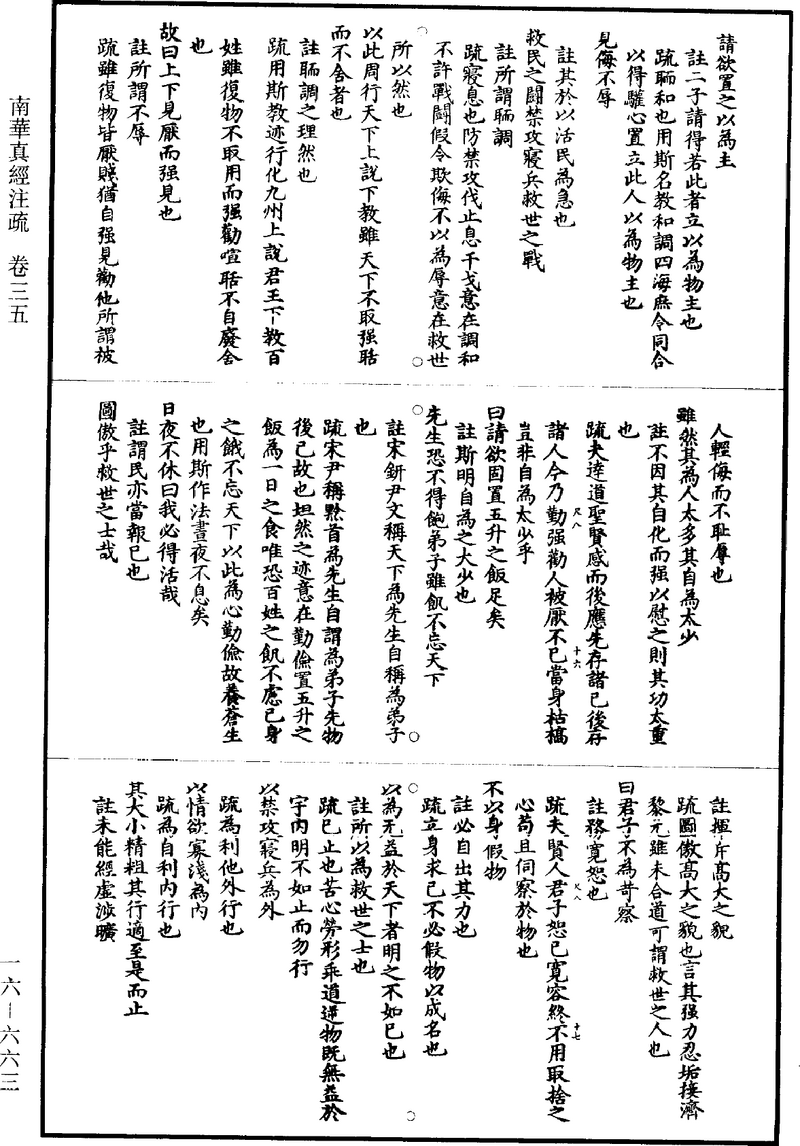 請欲置之以為主
註二子請得若此者立以為物主也
疏聏和也用斯名教和調四海庶令同合
以得驩心置立此人以為物主也
見侮不辱
註其於以活民為急也
救民之鬪禁攻寢兵救世之戰
註所謂聏調
疏寢息也防禁攻伐止息干戈意在調和
不許戰鬪假令欺侮不以為辱意在救世
所以然也
以此周行天下上說下教雖天下不取强聒
而不舍者也
註聏調之理然也
疏用斯教迹行化九州上說君王下教百
姓雖復物不取用而强勸喧聒不自廢舍
也
故曰上下見厭而强見也
註所謂不辱
疏雖復物皆厭賤猶自强見勸他所謂被
人輕侮而不耻辱也
雖然其為人太多其自為太少
註不因其自化而强以慰之則其功太重
也
疏夫達道聖賢感而後應先存諸已後存
諸人今乃勤强勸人被厭不已當身枯槁
豈非自為太少乎
曰請欲固置五升之飯足矣
註斯明自為之大少也
先生恐不得飽弟子雖飢不忘天下
註宋鈃尹文稱天下為先生自稱為弟子
也
疏宋尹稱黔首為先生自謂為弟子先物
後已故也坦然之迹意在勤儉置五升之
飯為一日之食唯恐百姓之飢不慮已身
之餓不忘天下以此為心勤儉故養蒼生
也用斯作法晝夜不息矣
日夜不休曰我必得活哉
註謂民亦當報已也
圖傲乎救世之士哉
註揮斥高大之貌
疏圖傲高大之貌也言其强力忍垢接濟
黎元雖未合道可謂救世之人也
曰君子不為苛察
註務寬恕也
疏夫賢人君子恕已寬容終不用取捨之
心苟且伺察於物也
不以身假物
註必自出其力也
疏立身求已不必假物以成名也
以為无益於天下者明之不如已也
註所以為救世之士也
疏已止也苦心勞形乖道逆物既無益於
宇內明不如止而勿行
以禁攻寢兵為外
疏為利他外行也
以情欲寡淺為內
疏為自利內行也
其大小精粗其行適至是而止
註未能經虛涉曠
尺八
十六
尺八
十七
南華真經注疏　卷三五
一六－六六三